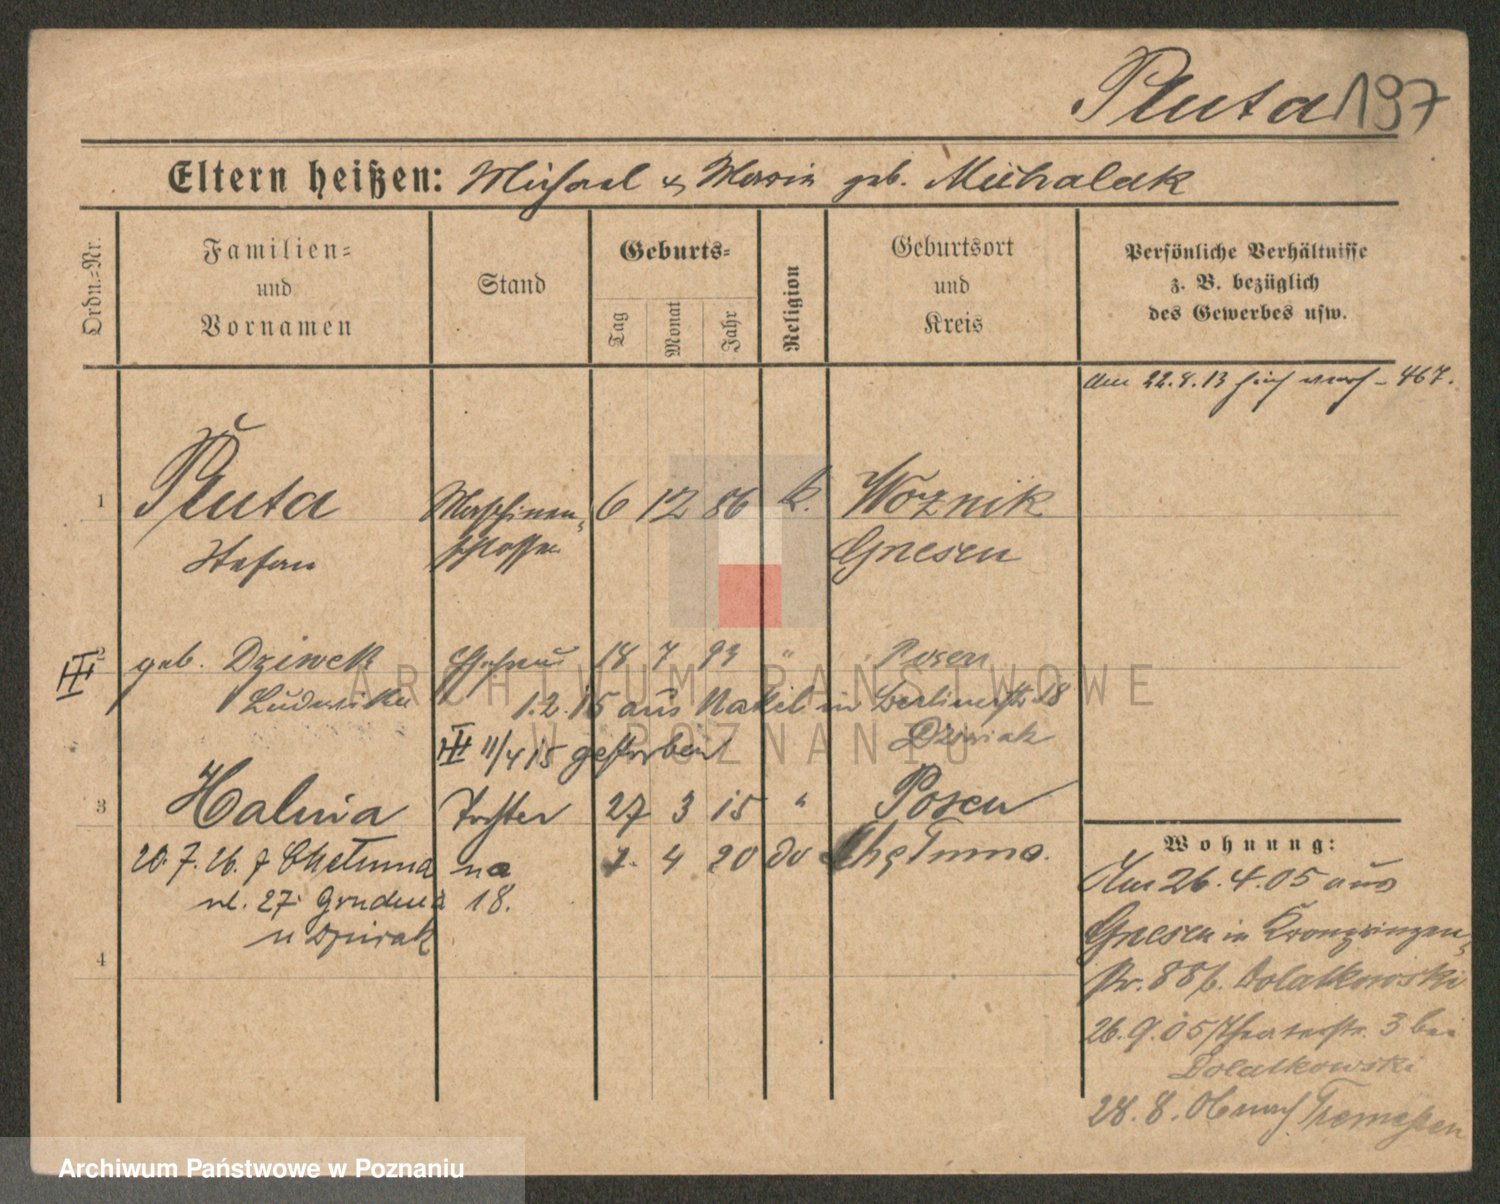 Pluta 197
Eltern heißen: Michael & Maria geb. Michalak
Ordn.-Nr.
Familien-
und
Vornamen
Stand
Geburts-
Tag
Monat
Jahr
Religion
Geburtsort
und
Kreis
Persönliche Verhältnisse
z. B. bezüglich
des Gewerbes usw.
am 22.4.13 467.
1 Pluta Maschinen- 6 12 86 k. Woznik
Stefan schlosser Gnesen
2 geb. Dziwek Ehefrau 18 7 93 " Posen
III Ludwika 1.2.15 aus Nakel in Berlinerstr 18
Dziwiak
III 11/4 15 gestorben
3 Halina Tochter 27 3 15 " Posen
20.7.26. z Chełmna na 4 20 do Chełmno.
ul. 27 Grudnia 18.
u Dziwiak
4
Wohnung:
Am 26.4.05 aus
Gnesen in Kronprinzen-
str. 88 b. Dolatkowski
26.9.05 Theaterstr. 3 bei
Dolatkowski
28.8.06 nach Tremessen
ARCHIWUM PAŃSTWOWE
W POZNANIU
Archiwum Państwowe w Poznaniu